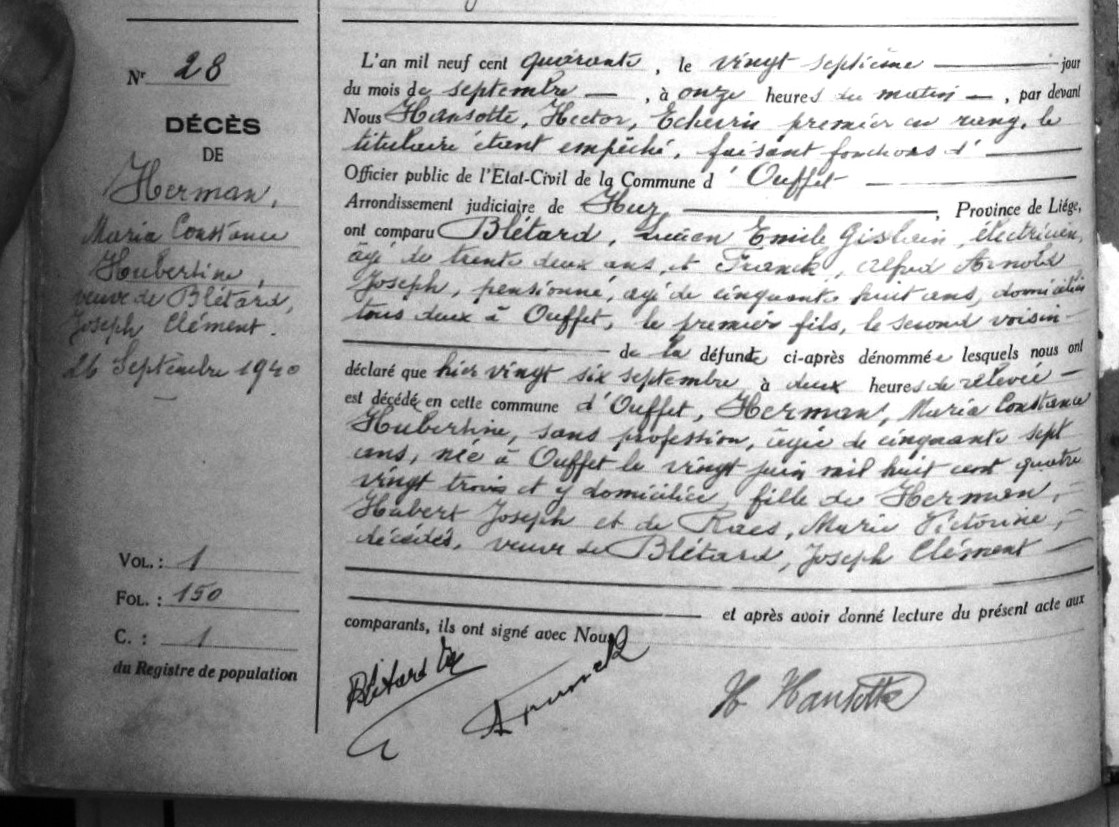 Nr 28
DÉCÈS
DE
Herman,
Maria Constance
Hubertine,
veuve de Blétard,
Joseph Clément.
26 Septembre 1940
VOL. : 1
FOL. : 150
C. : 1
du Registre de population
L'an mil neuf cent quarante, le vingt septième jour
du mois de septembre, à onze heures du matin, par devant
Nous Hansotte, Hector, Echevin premier en rang, le
titulaire étant empêché, faisant fonctions d'
Officier public de l'Etat-Civil de la Commune d' Ouffet
Arrondissement judiciaire de Huy, Province de Liége,
ont comparu Blétard, Lucien Emile Gislain, électricien,
âgé de trente deux ans, et Franck, Alfred Arnold
Joseph, pensionné, âgé de cinquante huit ans, domiciliés
tous deux à Ouffet, le premier fils, le second voisin
de la défunte ci-après dénommée lesquels nous ont
déclaré que hier vingt six septembre à deux heures de relevée
est décédée en cette commune d'Ouffet, Herman, Maria Constance
Hubertine, sans profession, âgée de cinquante sept
ans, née à Ouffet le vingt juin mil huit cent quatre
vingt trois et y domiciliée, fille de Herman,
Hubert Joseph et de Raes, Marie Victorine,
décédés, veuve de Blétard, Joseph Clément
et après avoir donné lecture du présent acte aux
comparants, ils ont signé avec Nous
Blétard
H Hansotte